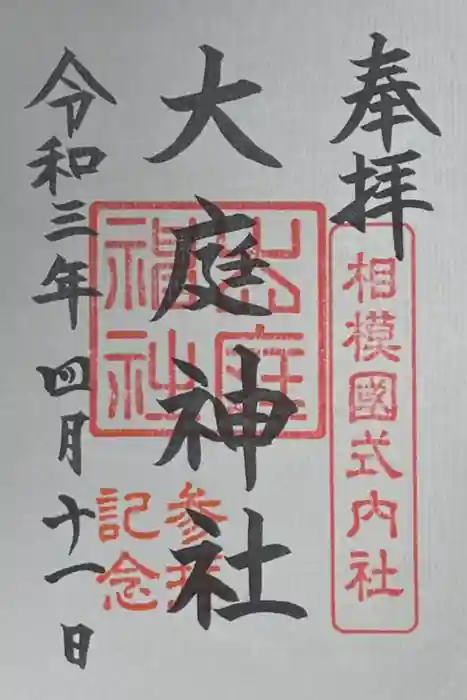 奉拝
相模國式内社
大庭神社
大庭神社
参拝記念
令和三年四月十一日